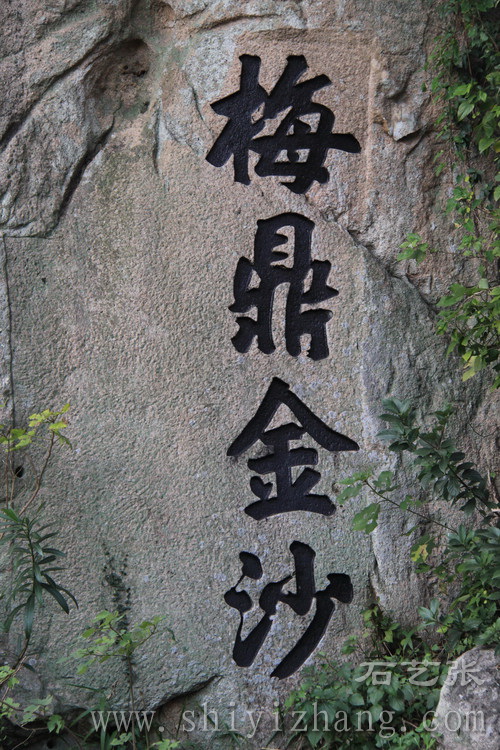 梅鼎金沙
石艺张
www.shiyizhang.com